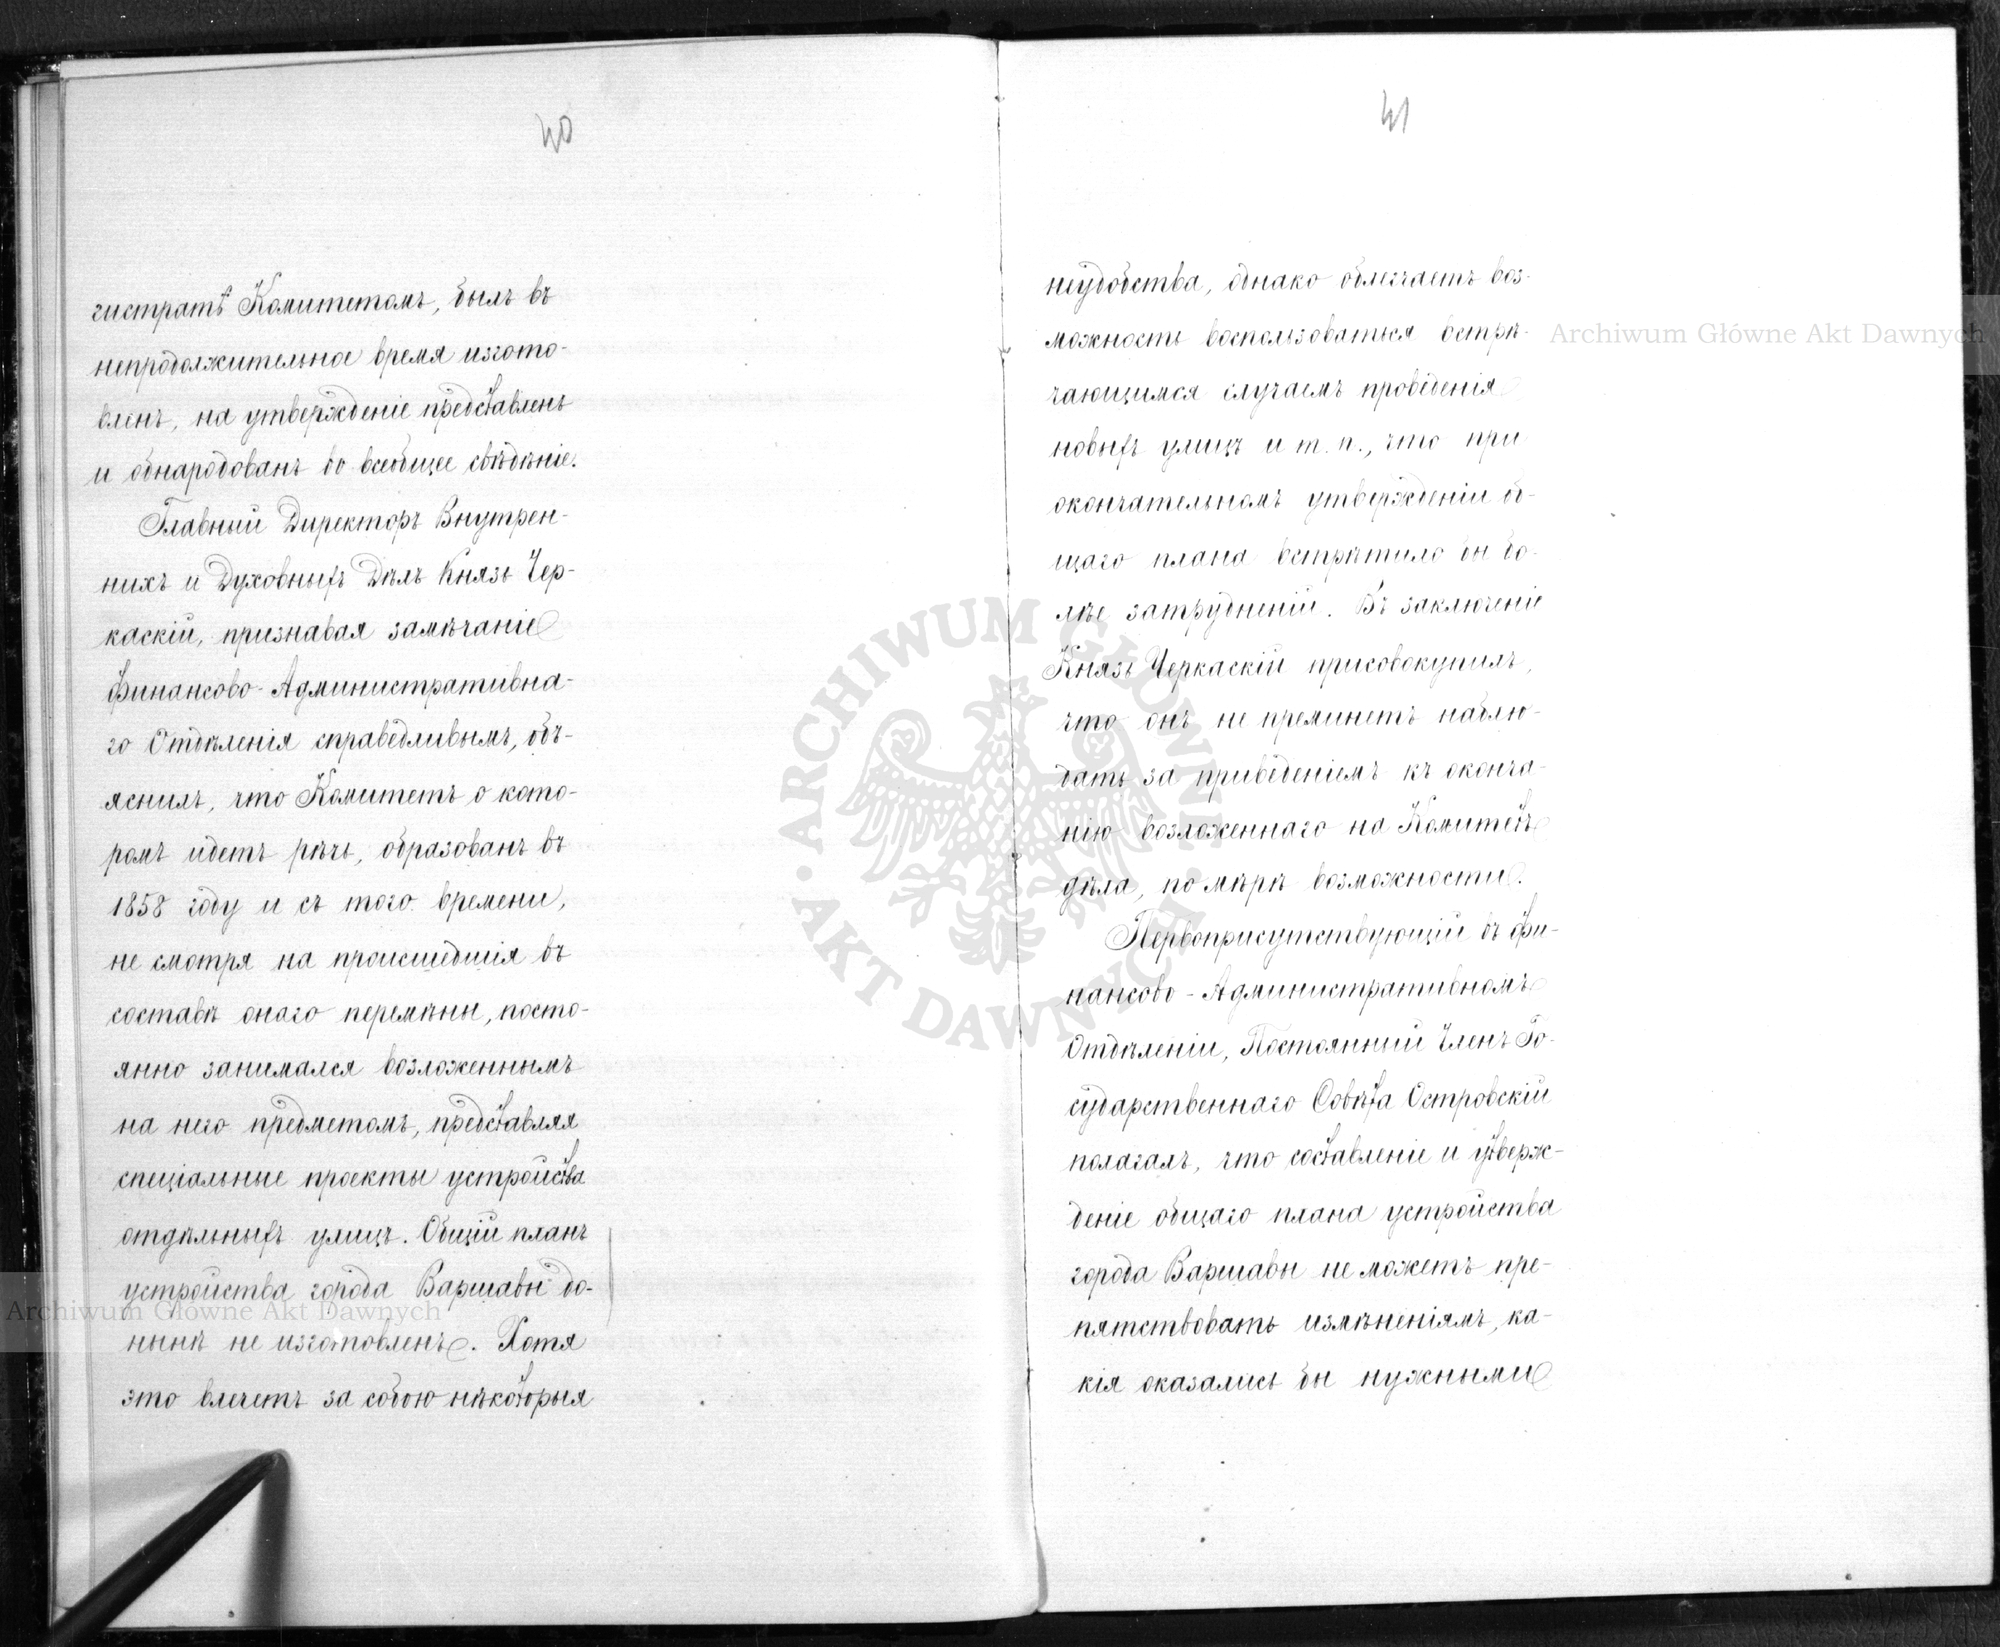 40
гистратѣ Комитетомъ, былъ въ
непродолжительное время изгото-
вленъ, на утвержденіе представленъ
и обнародованъ во всеобщее свѣдѣніе.
Главный Директоръ Внутрен-
нихъ и Духовныхъ Дѣлъ Князь Чер-
каскій, признавая замѣчаніе
Финансово-Административна-
го Отдѣленія справедливымъ, объ-
яснилъ, что Комитетъ о кото-
ромъ идетъ рѣчь, образованъ въ
1858 году и съ того времени,
не смотря на происшедшія въ
составѣ онаго перемѣны, посто-
янно занимался возложеннымъ
на него предметомъ, представляя
спеціальные проекты устройства
отдѣльныхъ улицъ. Общій планъ
устройства города Варшавы до-
нынѣ не изготовленъ. Хотя
это влечетъ за собою нѣкоторыя
41
неудобства, однако облегчаетъ воз-
можность воспользоваться встрѣ-
чающимся случаемъ проведенія
новыхъ улицъ и т. п., что при
окончательномъ утвержденіи об-
щаго плана встрѣтило бы бо-
лѣе затрудненій. Въ заключеніе
Князь Черкаскій присовокупилъ,
что онъ не преминетъ наблю-
дать за приведеніемъ къ оконча-
нію возложеннаго на Комитетъ
дѣла, по мѣрѣ возможности.
Первоприсутствующій въ Фи-
нансово-Административномъ
Отдѣленіи, Постоянный Членъ Го-
сударственнаго Совѣта Островскій
полагалъ, что составленіе и утверж-
деніе общаго плана устройства
города Варшавы не можетъ пре-
пятствовать измѣненіямъ, ка-
кія оказались бы нужными
Archiwum Główne Akt Dawnych
Archiwum Główne Akt Dawnych
ARCHIWUM GŁÓWNE · AKT DAWNYCH ·